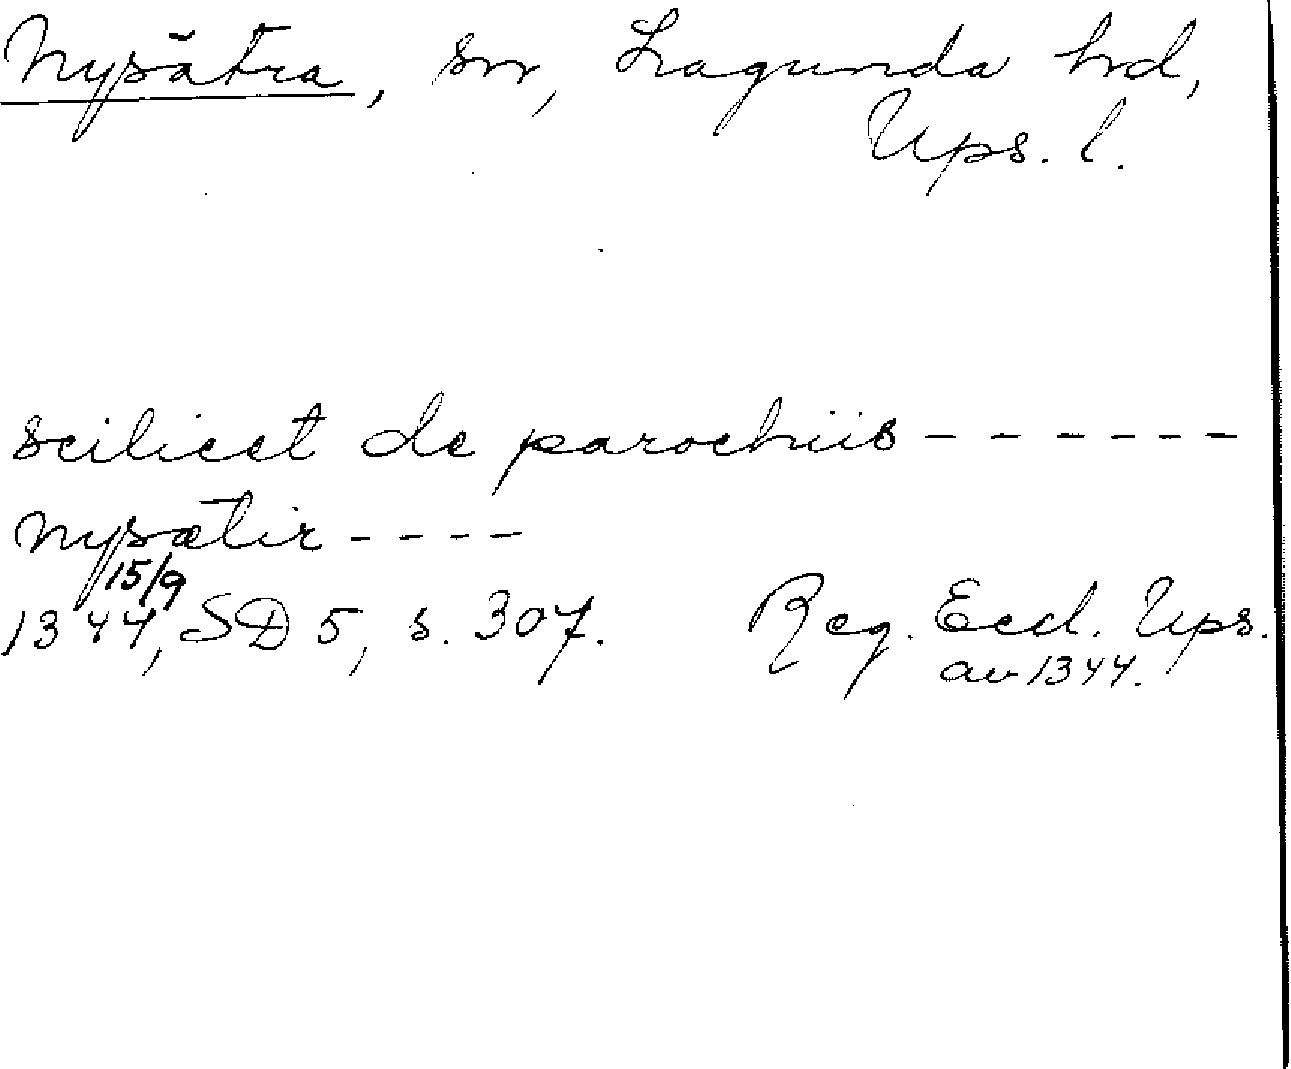 Nysätra, sn, Lagunda hrd,
Ups. l.
scilicet de parochiis ------
nysætir ----
15/9
1344, SD 5, s. 307. Reg. Eccl. Ups.
av 1344.